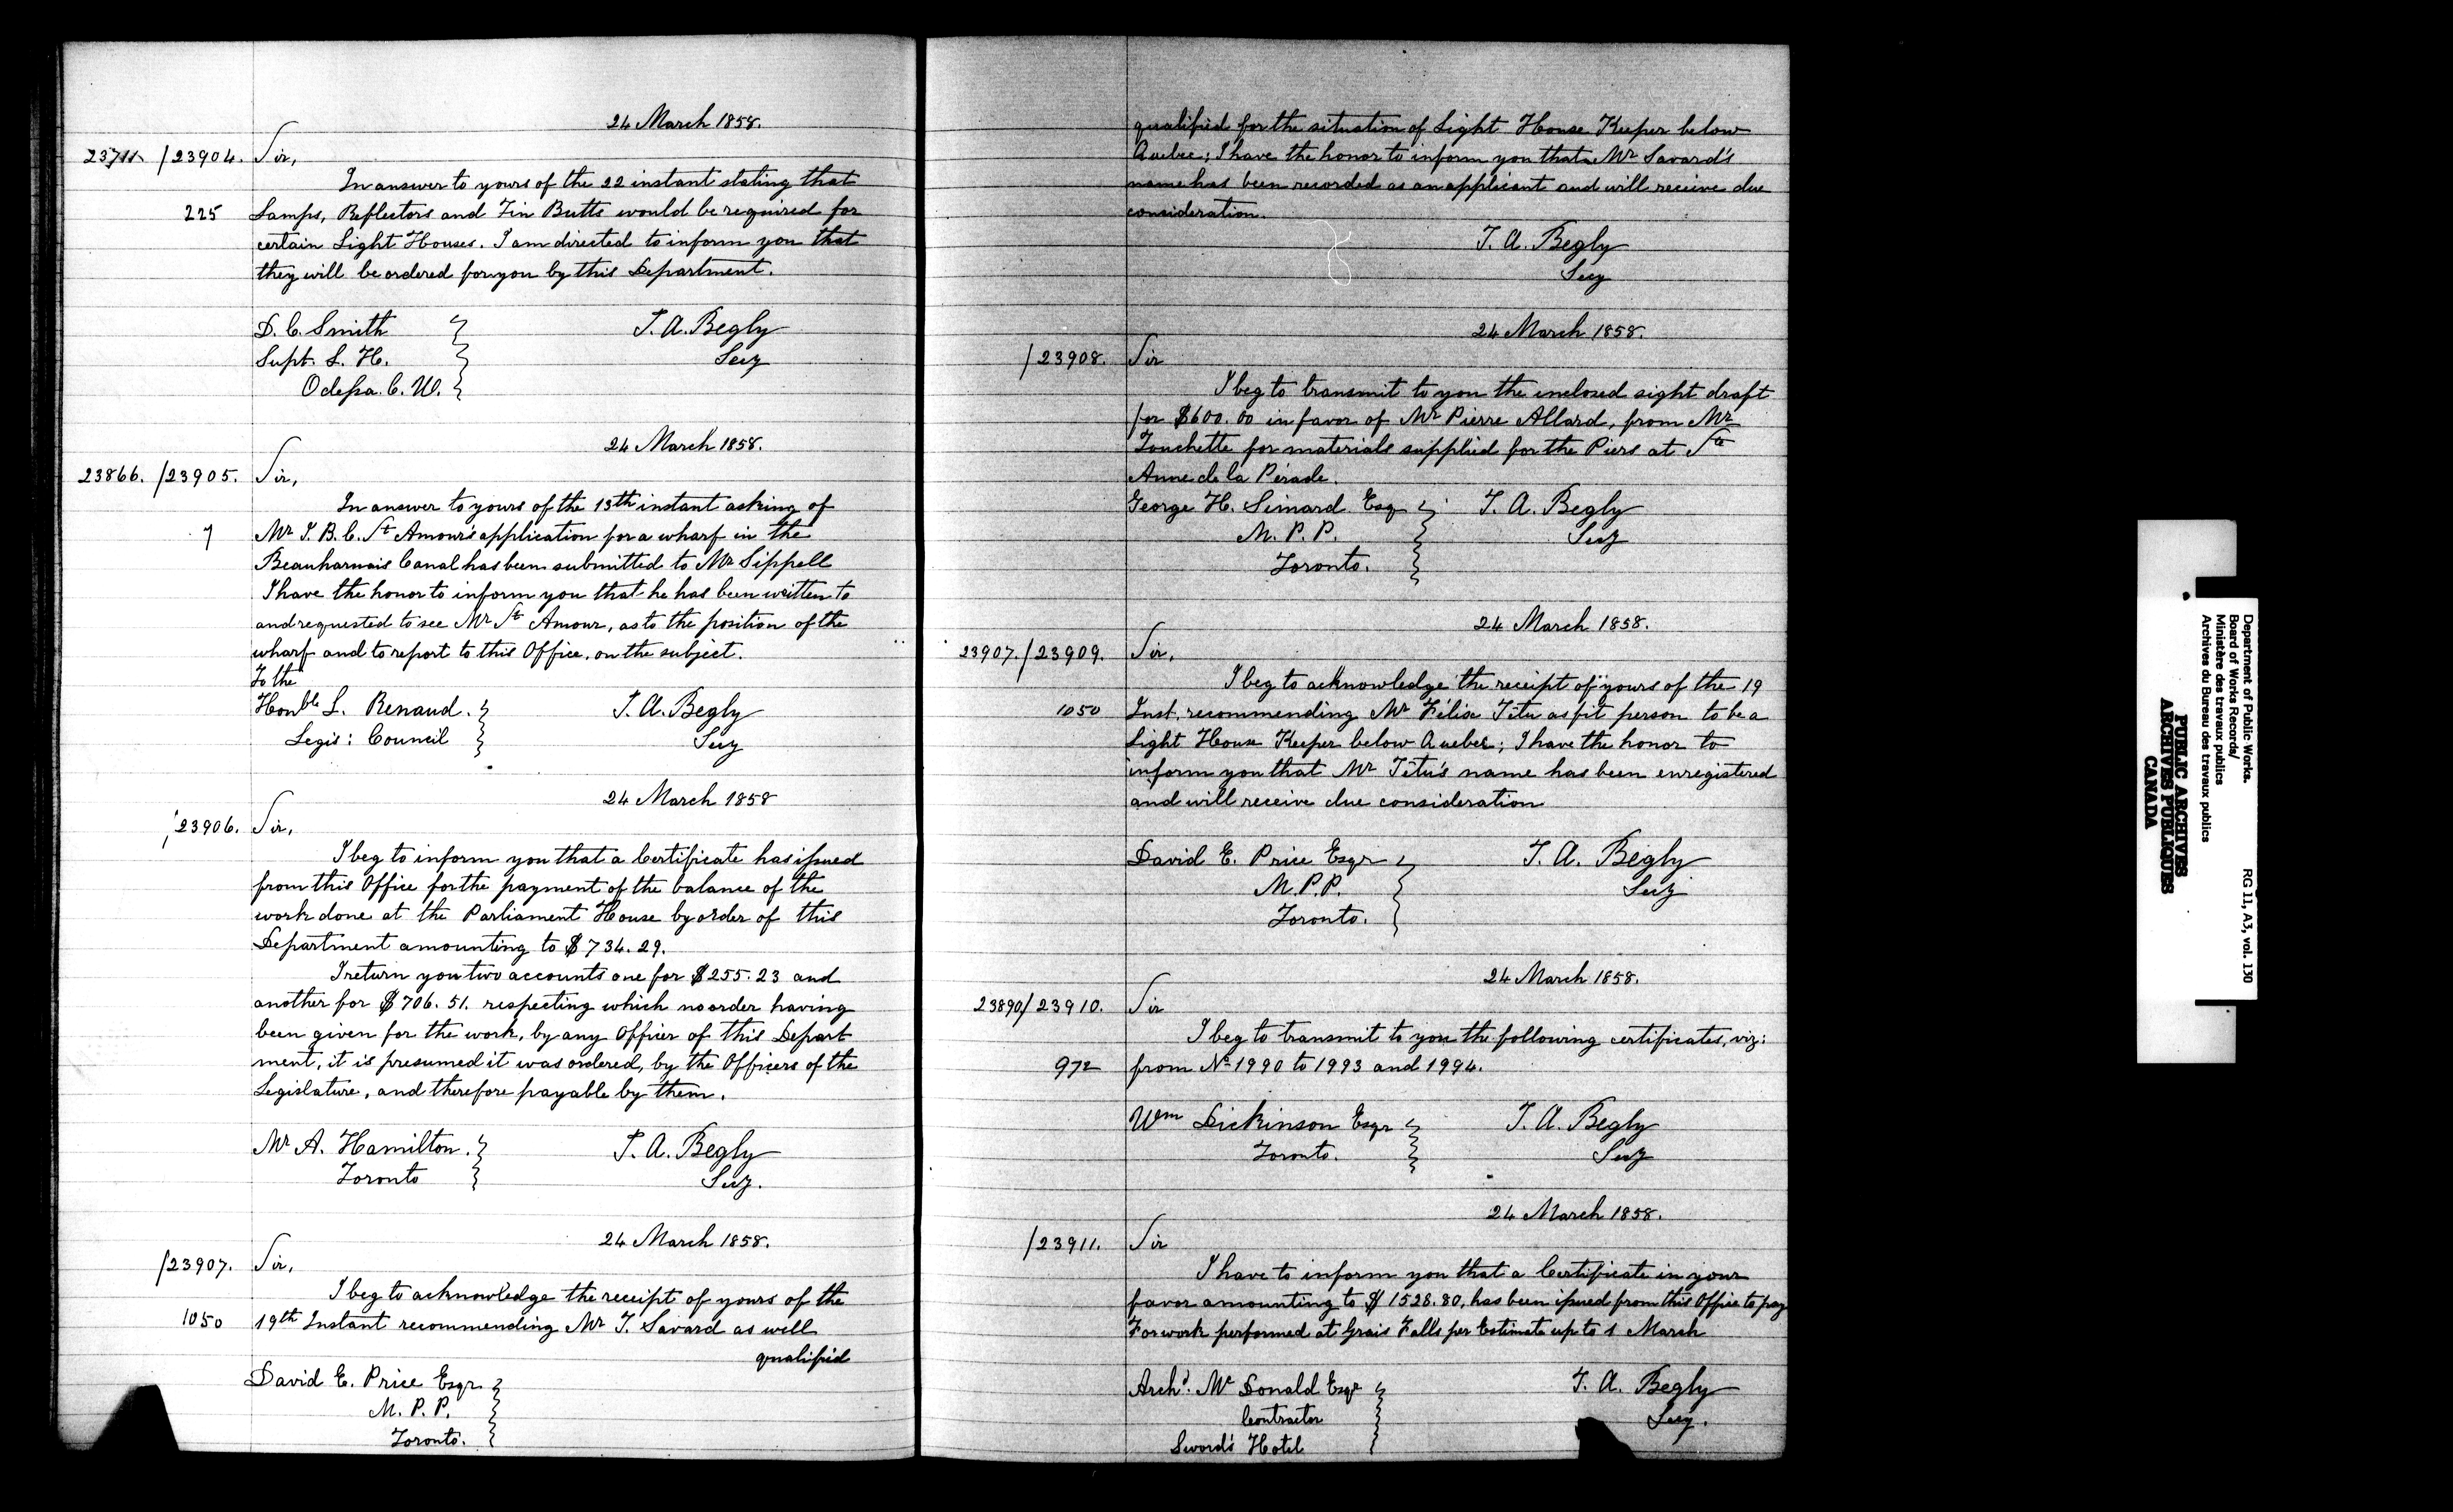 24 March 1858.
23711 /23904. Sir,
In answer to yours of the 22 instant stating that
225 Lamps, Reflectors and Tin Butts would be required for
certain Light Houses. I am directed to inform you that
they will be ordered for you by this Department.
D. C. Smith T. A. Begly
Supt. L. H. Secy
Odessa. C. W.
24 March 1858.
23866. /23905. Sir,
In answer to yours of the 13th instant asking of
7 Mr J. B. C. St Amour's application for a wharf in the
Beauharnais Canal has been submitted to Mr Sippell
I have the honor to inform you that he has been written to
and requested to see Mr St Amour, as to the position of the
wharf and to report to this Office, on the subject.
To the
Honble L. Renaud. T. A. Begly
Legis: Council Secy
24 March 1858
/23906. Sir,
I beg to inform you that a Certificate has issued
from this Office for the payment of the balance of the
work done at the Parliament House by order of this
Department amounting to $734.29.
I return you two accounts one for $255.23 and
another for $706.51. respecting which no order having
been given for the work, by any Officer of this Depart
ment, it is presumed it was ordered, by the Officers of the
Legislature, and therefore payable by them.
Mr A. Hamilton. T. A. Begly
Toronto Secy.
24 March 1858.
/23907. Sir,
I beg to acknowledge the receipt of yours of the
1050 19th Instant recommending Mr T. Savard as well
qualified
David E. Price Esqr.
M. P. P.
Toronto.
qualified for the situation of Light House Keeper below
Quebec; I have the honor to inform you that Mr Savard's
name has been recorded as an applicant and will receive due
consideration.
T. A. Begly
Secy
24 March 1858.
/23908. Sir
I beg to transmit to you the enclosed sight draft
for $600.00 in favor of Mr Pierre Allard, from Mr
Touchette for materials supplied for the Piers at Ste
Anne de la Pérade.
George H. Simard Esq T. A. Begly
M. P. P. Secy
Toronto.
24 March 1858.
23907. /23909. Sir,
I beg to acknowledge the receipt of yours of the 19
1050 Inst, recommending Mr Félix Têtu as fit person to be a
Light House Keeper below Quebec; I have the honor to
inform you that Mr Têtu's name has been enregistered
and will receive due consideration
David E. Price Esqr T. A. Begly
M.P.P. Secy
Toronto.
24 March 1858.
23890/23910. Sir
I beg to transmit to you the following certificates, viz:
972 from No 1990 to 1993 and 1994.
Wm Dickinson Esqr T. A. Begly
Toronto. Secy
24 March 1858.
/23911. Sir
I have to inform you that a Certificate in your
favor amounting to $1528.80, has been issued from this Office to pay
For work performed at Grais Falls per Estimate up to 1 March
Archd. Mc Donald Esqr T. A. Begly
Contractor Secy.
Sword's Hotel
Department of Public Works. RG 11, A3, vol. 130
Board of Works Records/
Ministère des travaux publics
Archives du Bureau des travaux publics
PUBLIC ARCHIVES
ARCHIVES PUBLIQUES
CANADA